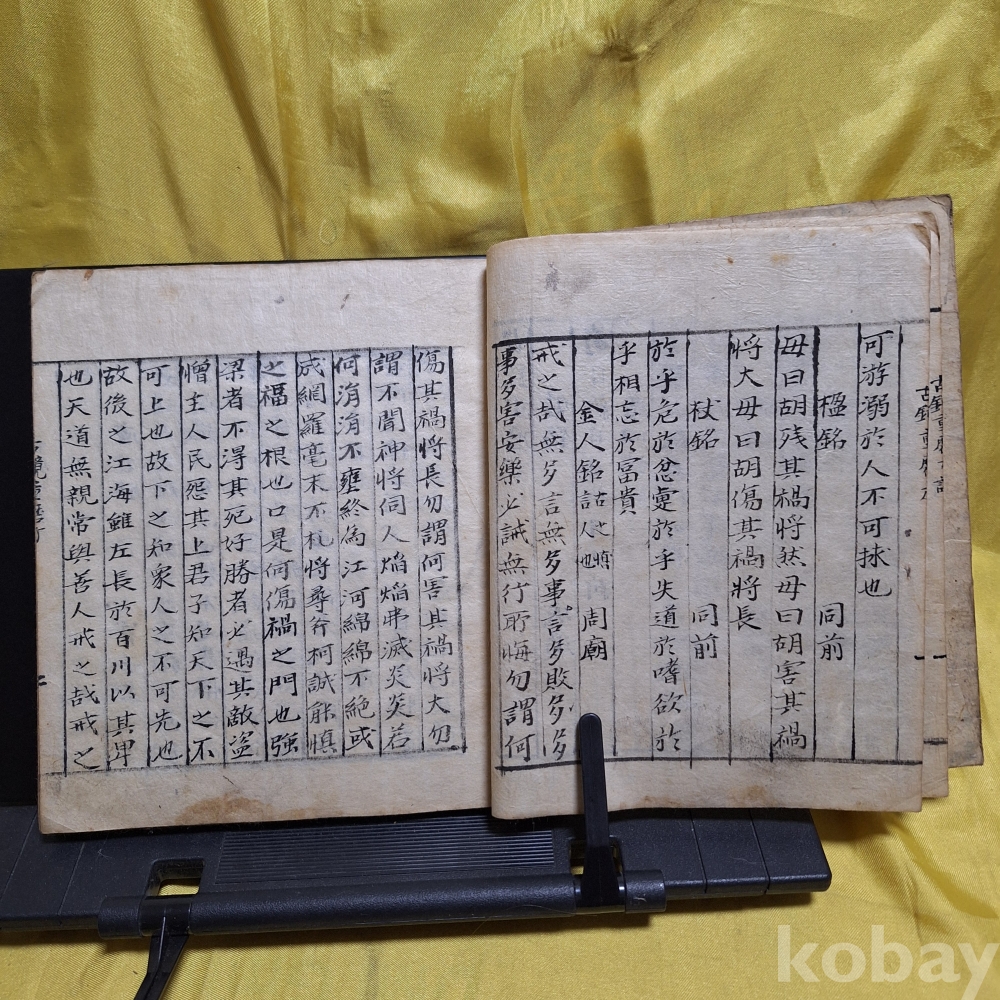 可游溺於人不可捄也
楹銘 同前
毋曰胡残其禍将然毋曰胡害其禍
将大毋曰胡傷其禍将長
杖銘 同前
於乎危於忿疐於乎失道於嗜欲於
乎相忘於富貴
金人銘 詁人也 周廟
戒之哉無多言無多事言多敗多多
事多害安樂必誡無行所悔勿謂何
傷其禍将長勿謂何害其禍将大勿
謂不聞神将伺人焰焰弗滅炎炎若
何涓涓不壅終為江河綿綿不絶或
成網羅毫末不札将尋斧柯誠能慎
之福之根也口是何傷禍之門也強
梁者不得其死好勝者必遇其敵盜
憎主人民怨其上君子知天下之不
可上也故下之知衆人之不可先也
故後之江海雖左長於百川以其卑
也天道無親常與善人戒之哉戒之
kobay